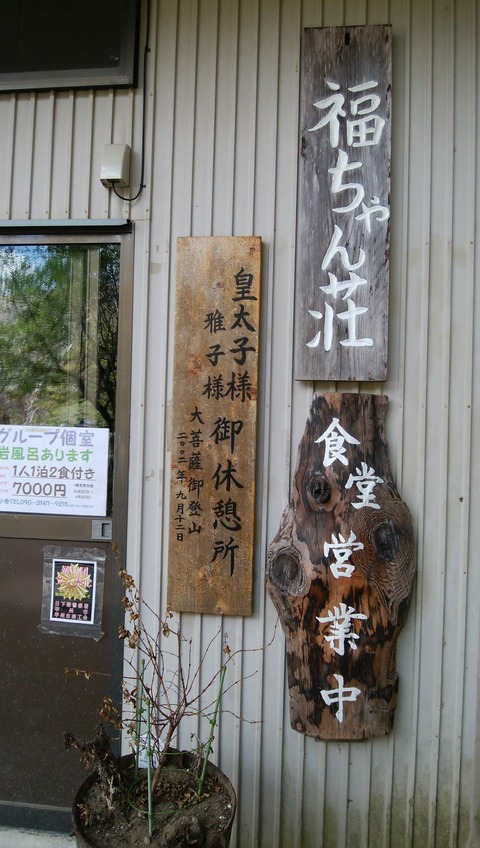 福ちゃん荘
食堂営業中
皇太子様
雅子様
御休憩所
大菩薩御登山
二〇〇二年九月十二日
グループ個室
岩風呂あります
1人1泊2食付き
7000円